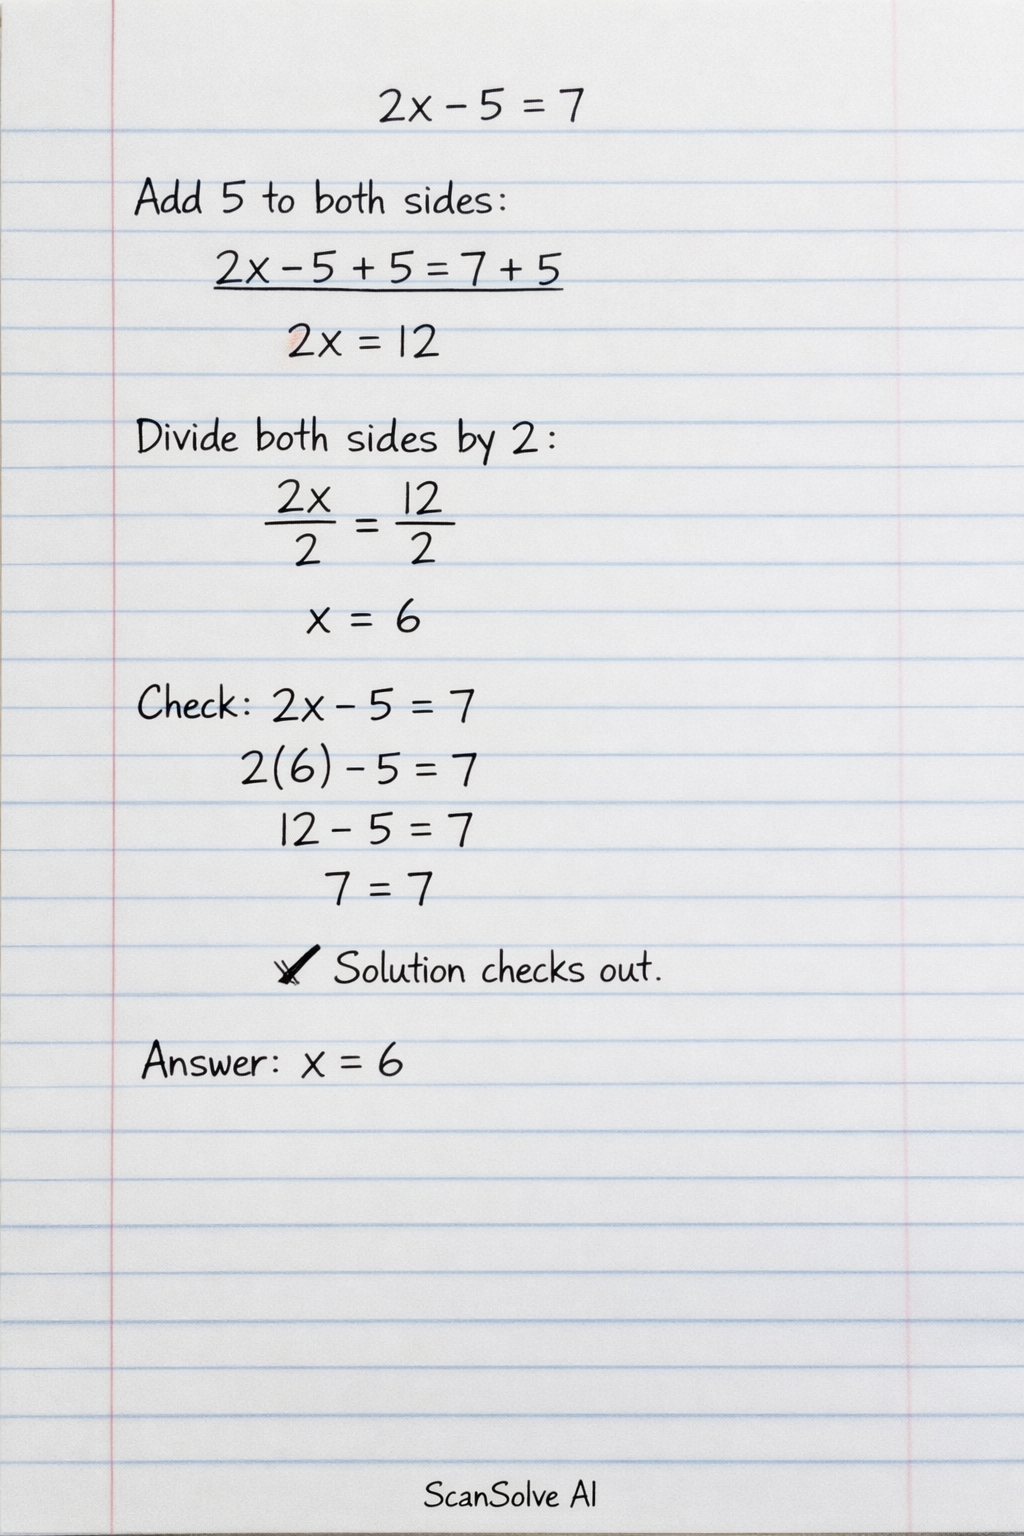 2x - 5 = 7
Add 5 to both sides:
2x - 5 + 5 = 7 + 5
2x = 12
Divide both sides by 2:
2x/2 = 12/2
x = 6
Check: 2x - 5 = 7
2(6) - 5 = 7
12 - 5 = 7
7 = 7
✓ Solution checks out.
Answer: x = 6
ScanSolve AI